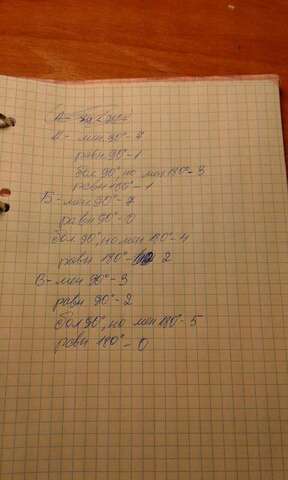 А - мен 90° - 7
равн 90° - 1
бол 90°, но мен 180° - 3
равн 180° - 1
Б - мен 90° - 7
равн 90° - 0
бол 90°, но мен 180° - 4
равн 180° - 2
В - мен 90° - 3
равн 90° - 2
бол 90°, но мен 180° - 5
равн 180° - 0